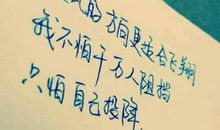 的方向更适合飞翔啊
我不怕千万人阻挡
只怕自己投降